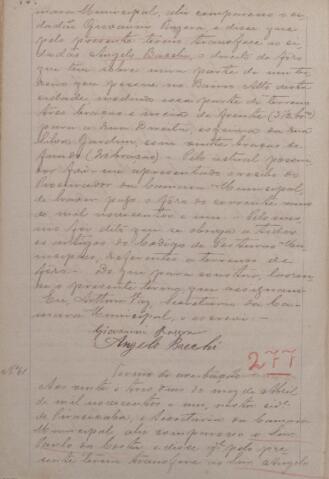 mara Municipal, ahi compareceu o ci-
dadão Giovanni Rozera, e disse que
pelo presente termo transfere ao ci-
dadão Angelo Bacchi, o direito de fôro
que tem sobre uma parte de um ter-
reno que possue no Bairro Alto desta
cidade, medindo essa parte de terreno
tres braças e meia de frente (3½ brs)
para a Rua, esquina da Rua
Silva Jardim, com braças de
fundo. Pelo actual possui-
dor foi me apresentado recibo do
Procurador da Camara Municipal,
de haver pago o fôro do corrente anno
de mil novecentos e um. Pelo mes-
mo foi dito que se obriga a todos
os artigos do Codigo de Posturas Mu-
nicipaes, referentes a terrenos de
fôro. Do que para constar, lavrou-
se o presente termo, que assignam.
Eu, Arthur Vaz, Secretario da Ca-
mara Municipal, o escrevi.
Giovanni
Angelo Bacchi
Nº 61
277
Termo de
Aos vinte e tres dias do mez de Abril
de mil novecentos e um, nesta cide
de Piracicaba, e Secretaria da Camara
Municipal, ahi compareceu o Snr.
Paulo da Costa e disse q' pelo pre-
sente termo transfere ao Snr. Angelo